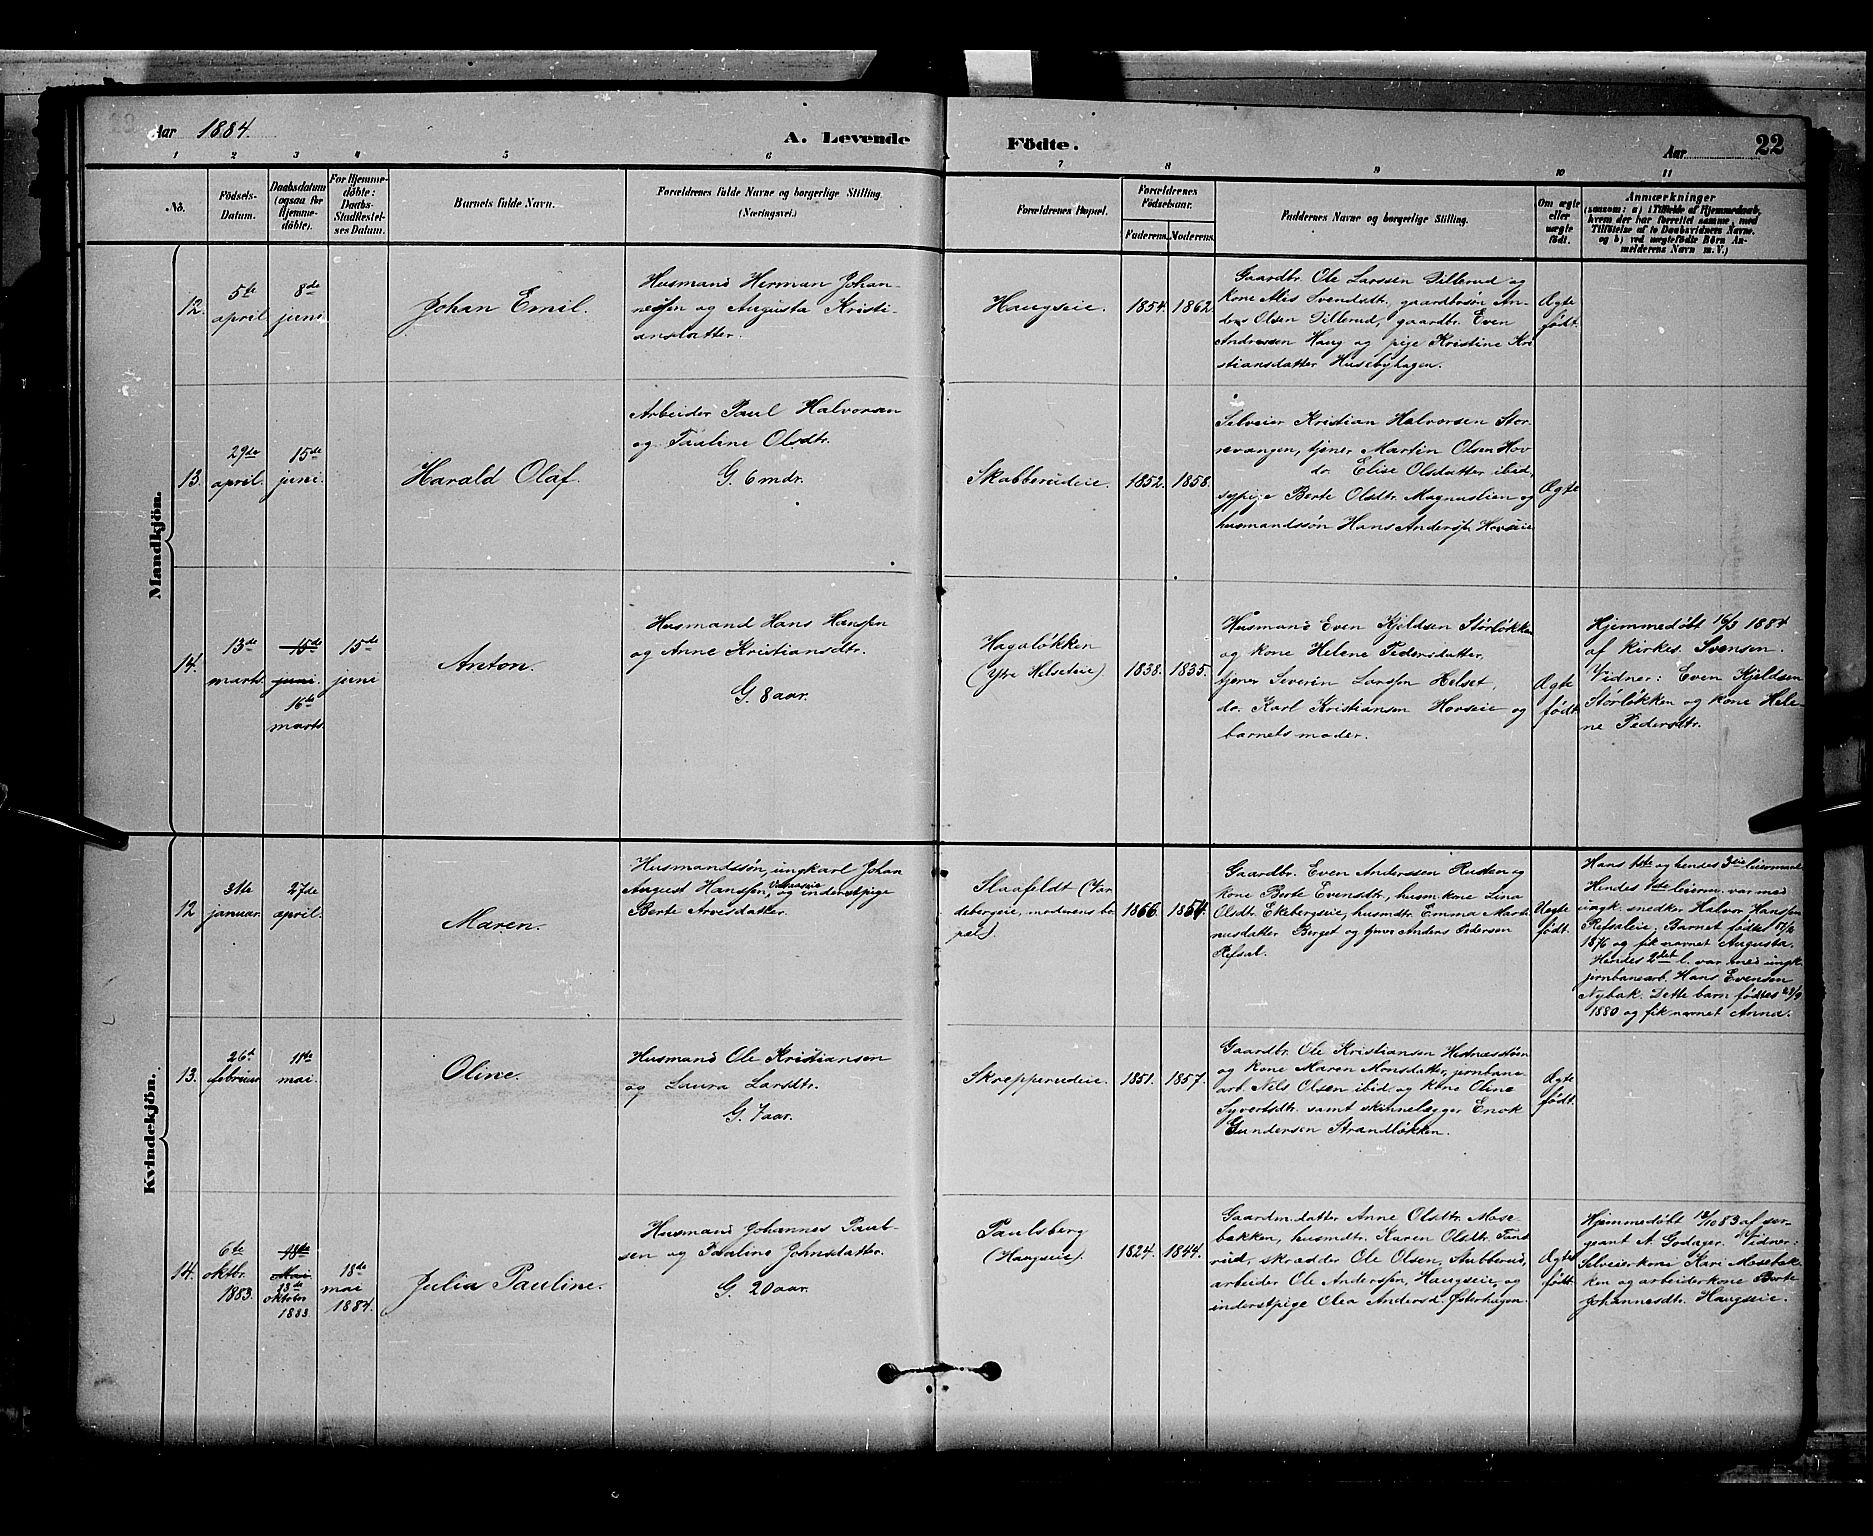 Aar 1884.
A. Levende
Födte.
Aar 22
1 2 3 4 5 6 7 8 9 10 11
No.
Födsels-
Datum.
Daabsdatum
(ogsaa for
Hjemme-
döbte).
For Hjemme-
döbte:
Daabs-
Stadfestel-
ses Datum.
Barnets fulde Navn.
Forældrenes fulde Navne og borgerlige Stilling
(Næringsvei.)
Forældrenes Bopæl.
Forældrenes
Födselsaar.
Faderens. Moderens.
Faddernes Navne og borgerlige Stilling.
Om ægte
eller
uægte
födt.
Anmærkninger
(saasom: a) i Tilfælde af Hjemmedaab,
hvem der har forrettet samme, med
Tilföielse af to Daabsvidners Navne,
og b) ved uægtefödte Börn An-
melderens Navn m. V.)
Mandkjön.
12.
5te
april
8de
juni
Johan Emil.
Husmand Herman Johan-
nessen og Augusta Kristi-
ansdatter.
Haugseie.
1854. 1862.
Gaardbr. Ole Larssen Dillerud og
kone Alis Svendsdtr., gaardbrsøn An-
ders Olsen Dillerud, gaardbr. Even
Andreassen Haug og pige Kristine Kri
stiansdatter Husebyhagen.
Ægte
født.
13.
29de
april.
15de
juni.
Harald Olaf.
Arbeider Paul Halvorsen
og Pauline Olsdtr.
G. 6 mdr.
Skabberudeie.
1852. 1858.
Selveier Kristian Halvorsen Stor-
revangen, tjener Martin Olsen Hov
do. Elise Olsdatter ibid,
sypige Berte Olsdtr. Magnuslien og
husmandssøn Hans Anderssn Hovseie
Ægte
14.
13de
marts.
15de
juni.
16de
marts
15de
juni
Anton.
Husmand Hans Hanssen
og Anne Kristiansdtr.
G. 8 aar.
Hagaløkken
(Ytre Helseteie)
1838. 1835.
Husmand Even Kjeldsen Størløkken
og kone Helene Pedersdatter,
tjener Severin Larssen Helset,
do. Karl Kristiansen Hovseie og
barnets moder.
Ægte
født
Hjemmedøbt 16/3 1884
af kirkes. Svensen.
Vidner: Even Kjeldsen
Størløkken og kone Hele-
ne Pedersdtr.
Kvindekjön.
12
31te
januar.
27de
april.
Maren.
Husmandssøn, ungkarl Johan
August Hanssen, og inderstpige
Berte Arvesdatter.
Staafeldt (Var
debergeie, moderens bo
pæl).
1866. 1854.
Gaardbr. Even Anderssen Rusten og
kone Berte Evensdtr., husm.kone Lina
Olsdtr. Ekebergseie, husmdtr. Emma Marti
nusdatter Berget og tjener Anders Pedersen
Refsal.
Uægte
født.
Hans 1ste og hendes 3die leiermaal
Hendes 1ste leierm. var med
ungk. snedker Halvor Hanssen
Refsaleie. Barnet fødtes
1876 og fik navnet Augusta.
Hendes 2det l. var med ungk.
jernbanearb. Hans Evensen
Nybak. Dette barn fødtes 23/9
1880 og fik navnet Anna.
13.
26de
februar.
11te
mai.
Oline.
Husmand Ole Kristiansen
og Laura Larsdtr.
G. 7 aar.
Skrepperudeie.
1851. 1857.
Gaardbr. Ole Kristiansen Hestnæsstøen
og kone Maren Monsdatter, jernbane
arb. Nils Olsen ibid og kone Oline
Syvertsdtr. samt skinnelægger Enok
Gundersen Strandløkken.
Ægte
født.
14.
6te
oktbr.
1883.
18de
Mai
13de
oktober
1883
18de
mai
1884.
Julia Pauline.
Husmand Johannes Paul-
sen og Pauline Johnsdatter.
G. 20 aar.
Paulsberg
(Haugseie)
1824. 1844.
Gaardm.datter Anne Olsdtr. Mose-
bakken, husmdtr. Karen Olsdtr. Find
rud, skrædder Ole Olsen, Stubberud,
arbeider Ole Anderssen, Haugseie, og
inderstpige Olea Andersd. Østerhagen.
Ægte
født.
Hjemmedøbt 13/10 83 af ser-
geant A. Godager. Vidner:
Selveierkone Kari Mosebak-
ken og arbeiderkone Berte
Johannesdtr. Haugseie.